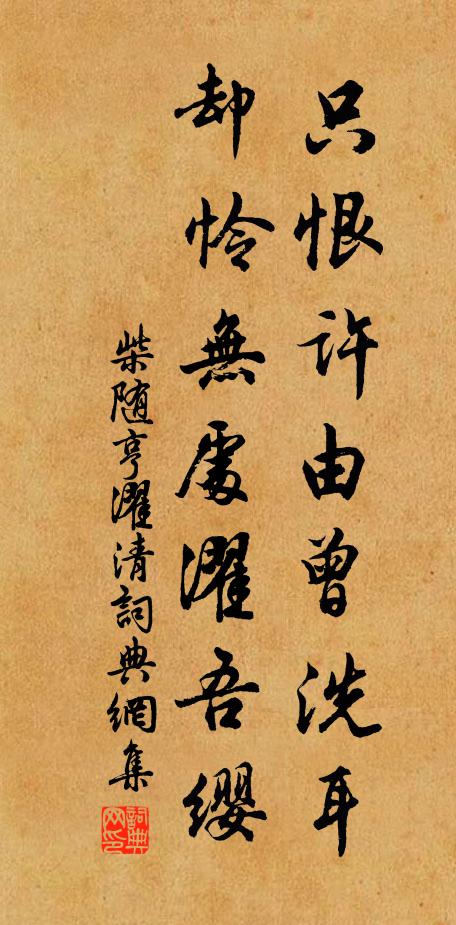 只恨許由曾洗耳
却怜無處濯吾缨
柴随亨濯清詞典網集
詞典网印